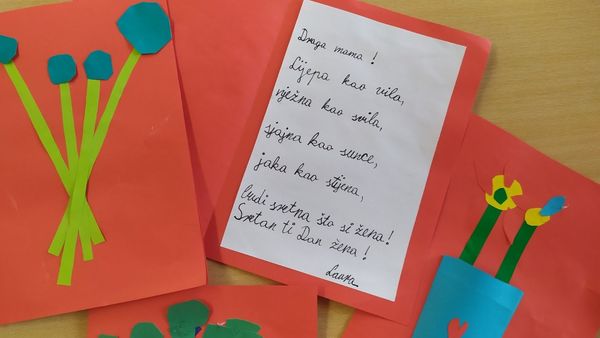 Draga mama!
Lijepa kao vila,
nježna kao svila,
sjajna kao sunce,
jaka kao stijena,
budi sretna što si žena!
Sretan ti Dan žena!
Laura